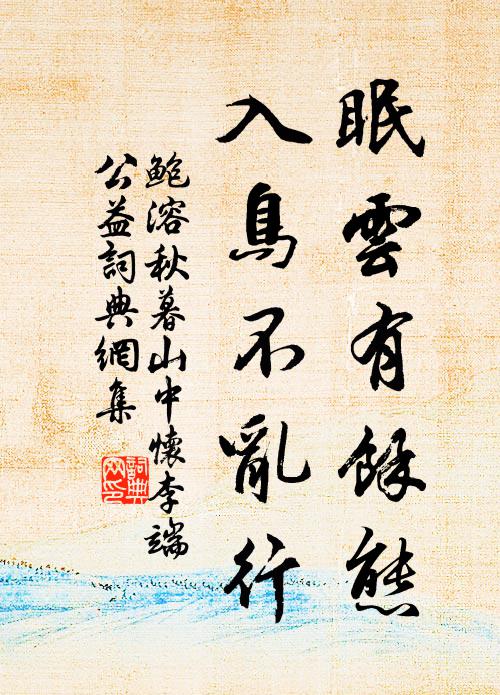 眠雲有餘態
入鳥不亂行
鮑溶秋暮山中懷李端
公益詞典網集
詞典
网印